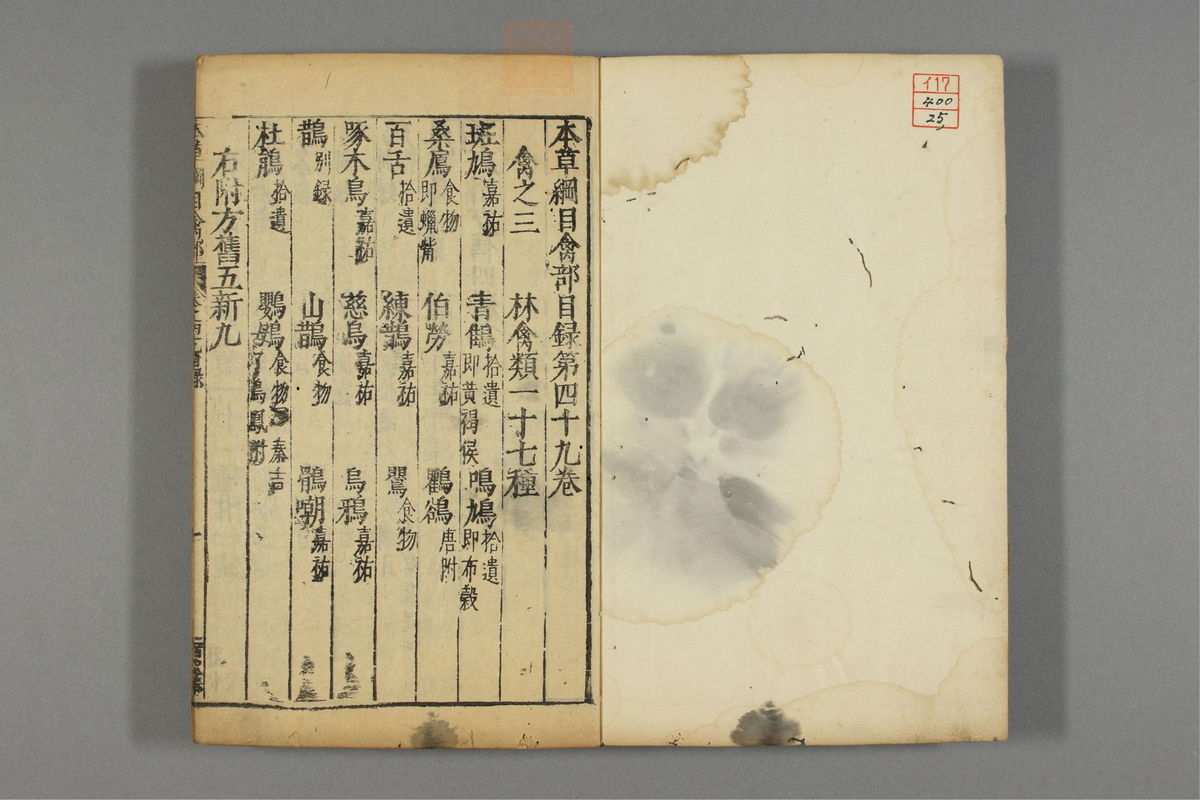 イ17
400
25
本草綱目禽部目録第四十九巻
禽之三 林禽類一十七種
斑鳩嘉祐 青䳡拾遺即黄褐侯 鳲鳩拾遺即布穀
桑鳸食物即蠟觜 伯勞嘉祐 鸜鵒唐附
百舌拾遺 練鵲嘉祐 鸎食物
啄木鳥嘉祐 慈烏嘉祐 烏鴉嘉祐
鵲别録 山鵲食物 鶻嘲嘉祐
杜鵑拾遺 鸚䳇食物 秦吉 鳥鳳附
右附方舊五新九